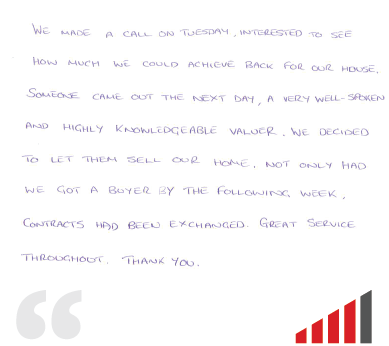 WE MADE A CALL ON TUESDAY, INTERESTED TO SEE
HOW MUCH WE COULD ACHIEVE BACK FOR OUR HOUSE.
SOMEONE CAME OUT THE NEXT DAY, A VERY WELL-SPOKEN
AND HIGHLY KNOWLEDGEABLE VALUER. WE DECIDED
TO LET THEM SELL OUR HOME. NOT ONLY HAD
WE GOT A BUYER BY THE FOLLOWING WEEK,
CONTRACTS HAD BEEN EXCHANGED. GREAT SERVICE
THROUGHOUT. THANK YOU.
“